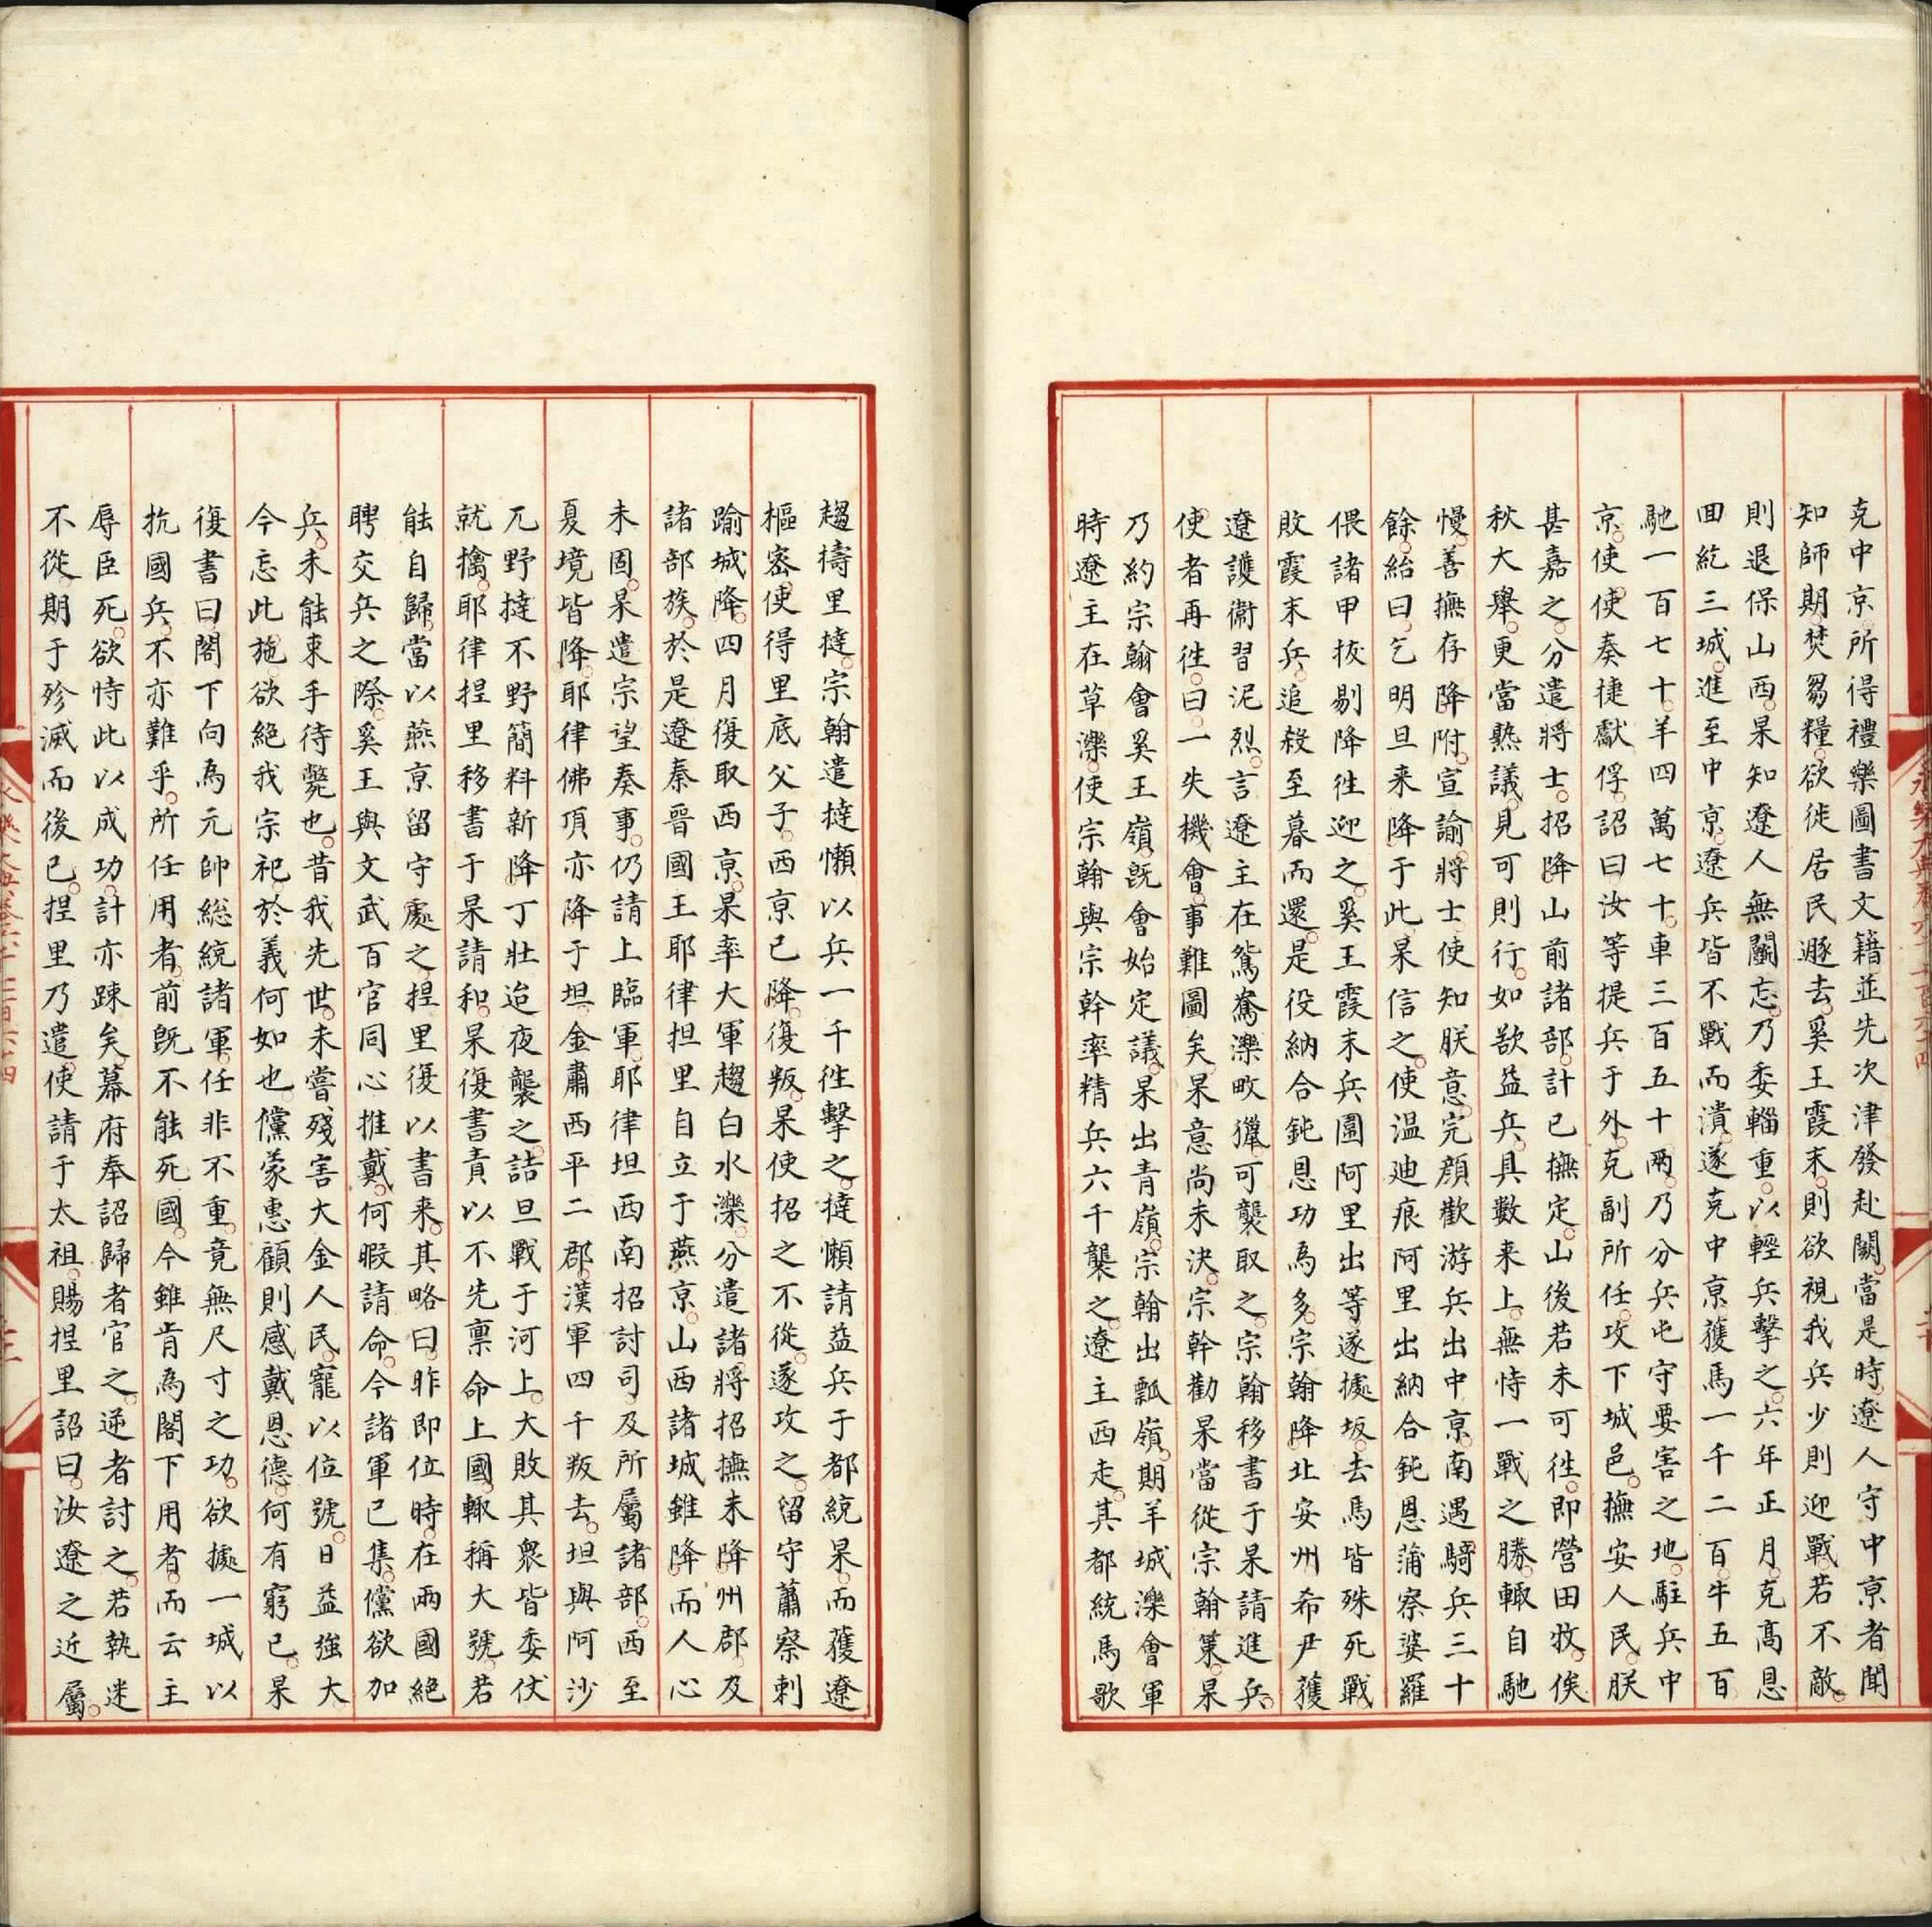 克中京所得禮樂圖書文籍並先次津發赴闕當是時遼人守中京者聞
知師期焚芻糧欲徙居民遯去奚王霞末則欲視我兵少則迎戰若不敵
則退保山西杲知遼人無鬭志乃委輜重以輕兵擊之六年正月克高恩
囬紇三城進至中京遼兵皆不戰而潰遂克中京獲馬一千二百牛五百
馳一百七十羊四萬七千車三百五十兩乃分兵屯守要害之地駐兵中
京使使奏捷獻俘詔曰汝等提兵于外克副所任攻下城邑撫安人民朕
甚嘉之分遣將士招降山前諸部計已撫定山後若未可徃即營田牧俟
秋大舉更當熟議見可則行如欲益兵具數来上無恃一戰之勝輙自馳
慢善撫存降附宣諭將士使知朕意完顔歡游兵出中京南遇騎兵三十
餘紿曰乞明旦来降于此杲信之使温廸痕阿里出納合鈍恩蒲察婆羅
偎諸甲拔剔降徃迎之奚王霞末兵圍阿里出等遂據坂去馬皆殊死戰
敗霞末兵追殺至暮而還是役納合鈍恩功爲多宗翰降北安州希尹獲
遼護衛習泥烈言遼主在鴛鴦濼畋獵可襲取之宗翰移書于杲請進兵
使者再徃曰一失機會事難圖矣杲意尚未決宗幹勸杲當從宗翰䇿杲
乃約宗翰會奚王嶺旣會始定議杲出青嶺宗翰出瓢嶺期羊城濼會軍
時遼主在草濼使宗翰與宗幹率精兵六千襲之遼主西走其都統馬歌
趨擣里撻宗翰遣撻懶以兵一千徃擊之撻懶請益兵于都統杲而獲遼
樞密使得里底父子西京已降復叛杲使招之不從遂攻之留守蕭察剌
踰城降四月復取西京杲率大軍趨白水濼分遣諸將招撫未降州郡及
諸部族於是遼秦晉國王耶律捏里自立于燕京山西諸城雖降而人心
未固杲遣宗望奏事仍請上臨軍耶律坦西南招討司及所屬諸部西至
夏境皆降耶律佛頂亦降于坦金肅西平二郡漢軍四千叛去坦與阿沙
兀野撻不野簡料新降丁壯迨夜襲之詰旦戰于河上大敗其衆皆委仗
就擒耶律捏里移書于杲請和杲復書責以不先禀命上國輙稱大號若
能自歸當以燕京留守處之捏里復以書来其略曰昨即位時在兩國絕
聘交兵之際奚王與文武百官同心推戴何暇請命今諸軍已集儻欲加
兵未能束手待斃也昔我先世未嘗殘害大金人民寵以位號日益強大
今忘此施欲絕我宗祀於義何如也儻蒙惠顧則感戴恩德何有窮已杲
復書曰閣下向爲元帥緫統諸軍任非不重竟無尺寸之功欲據一城以
抗國兵不亦難乎所任用者前旣不能死國今雖肯爲閣下用者而云主
辱臣死欲恃此以成功計亦踈矣幕府奉詔歸者官之逆者討之若執迷
不從期于殄滅而後已捏里乃遣使請于太祖賜捏里詔曰汝遼之近屬